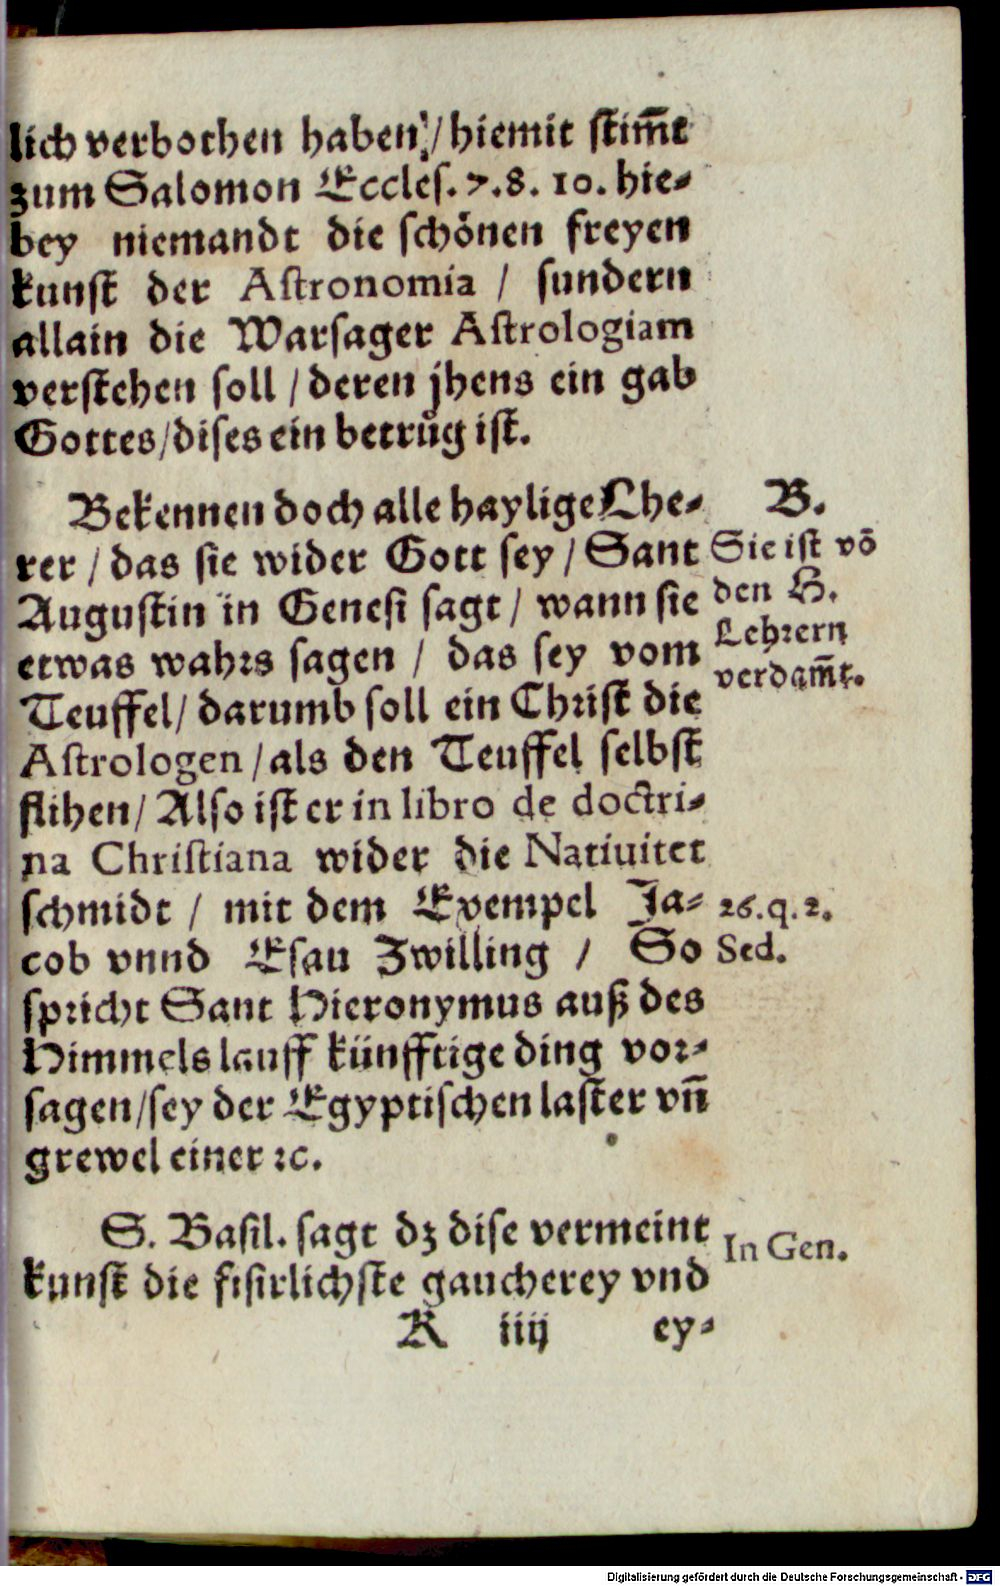 lich verbothen haben / hiemit stim̄t
zum Salomon Eccles. 7.8. 10. hie⸗
bey niemandt die schönen freyen
kunst der Astronomia / sundern
allain die Warsager Astrologiam
verstehen soll / deren jhens ein gab
Gottes/dises ein betrůg ist.
Bekennen doch alle haylige Lhe⸗
rer / das sie wider Gott sey / Sant
Augustin in Genesi sagt / wann sie
etwas wahrs sagen / das sey vom
Teuffel/ darumb soll ein Christ die
Astrologen /als den Teuffel selbst
flihen/ Also ist er in libro de doctri⸗
na Christiana wider die Natiuitet
schmidt / mit dem Exempel Ja⸗
cob vnnd Esau Zwilling / So
spricht Sant Hieronymus auß des
Himmels lauff künfftige ding vor⸗
sagen/sey der Egyptischen laster vn̄
grewel einer ꝛc.
S. Basil. sagt dz dise vermeint
kunst die fisirlichste gaucherey vnd
K iiij ey⸗
B.
Sie ist võ
den H.
Lehrern
verdam̄t.
26.q.2.
Sed.
In Gen.
Digitalisierung gefördert durch die Deutsche Forschungsgemeinschaft - DFG